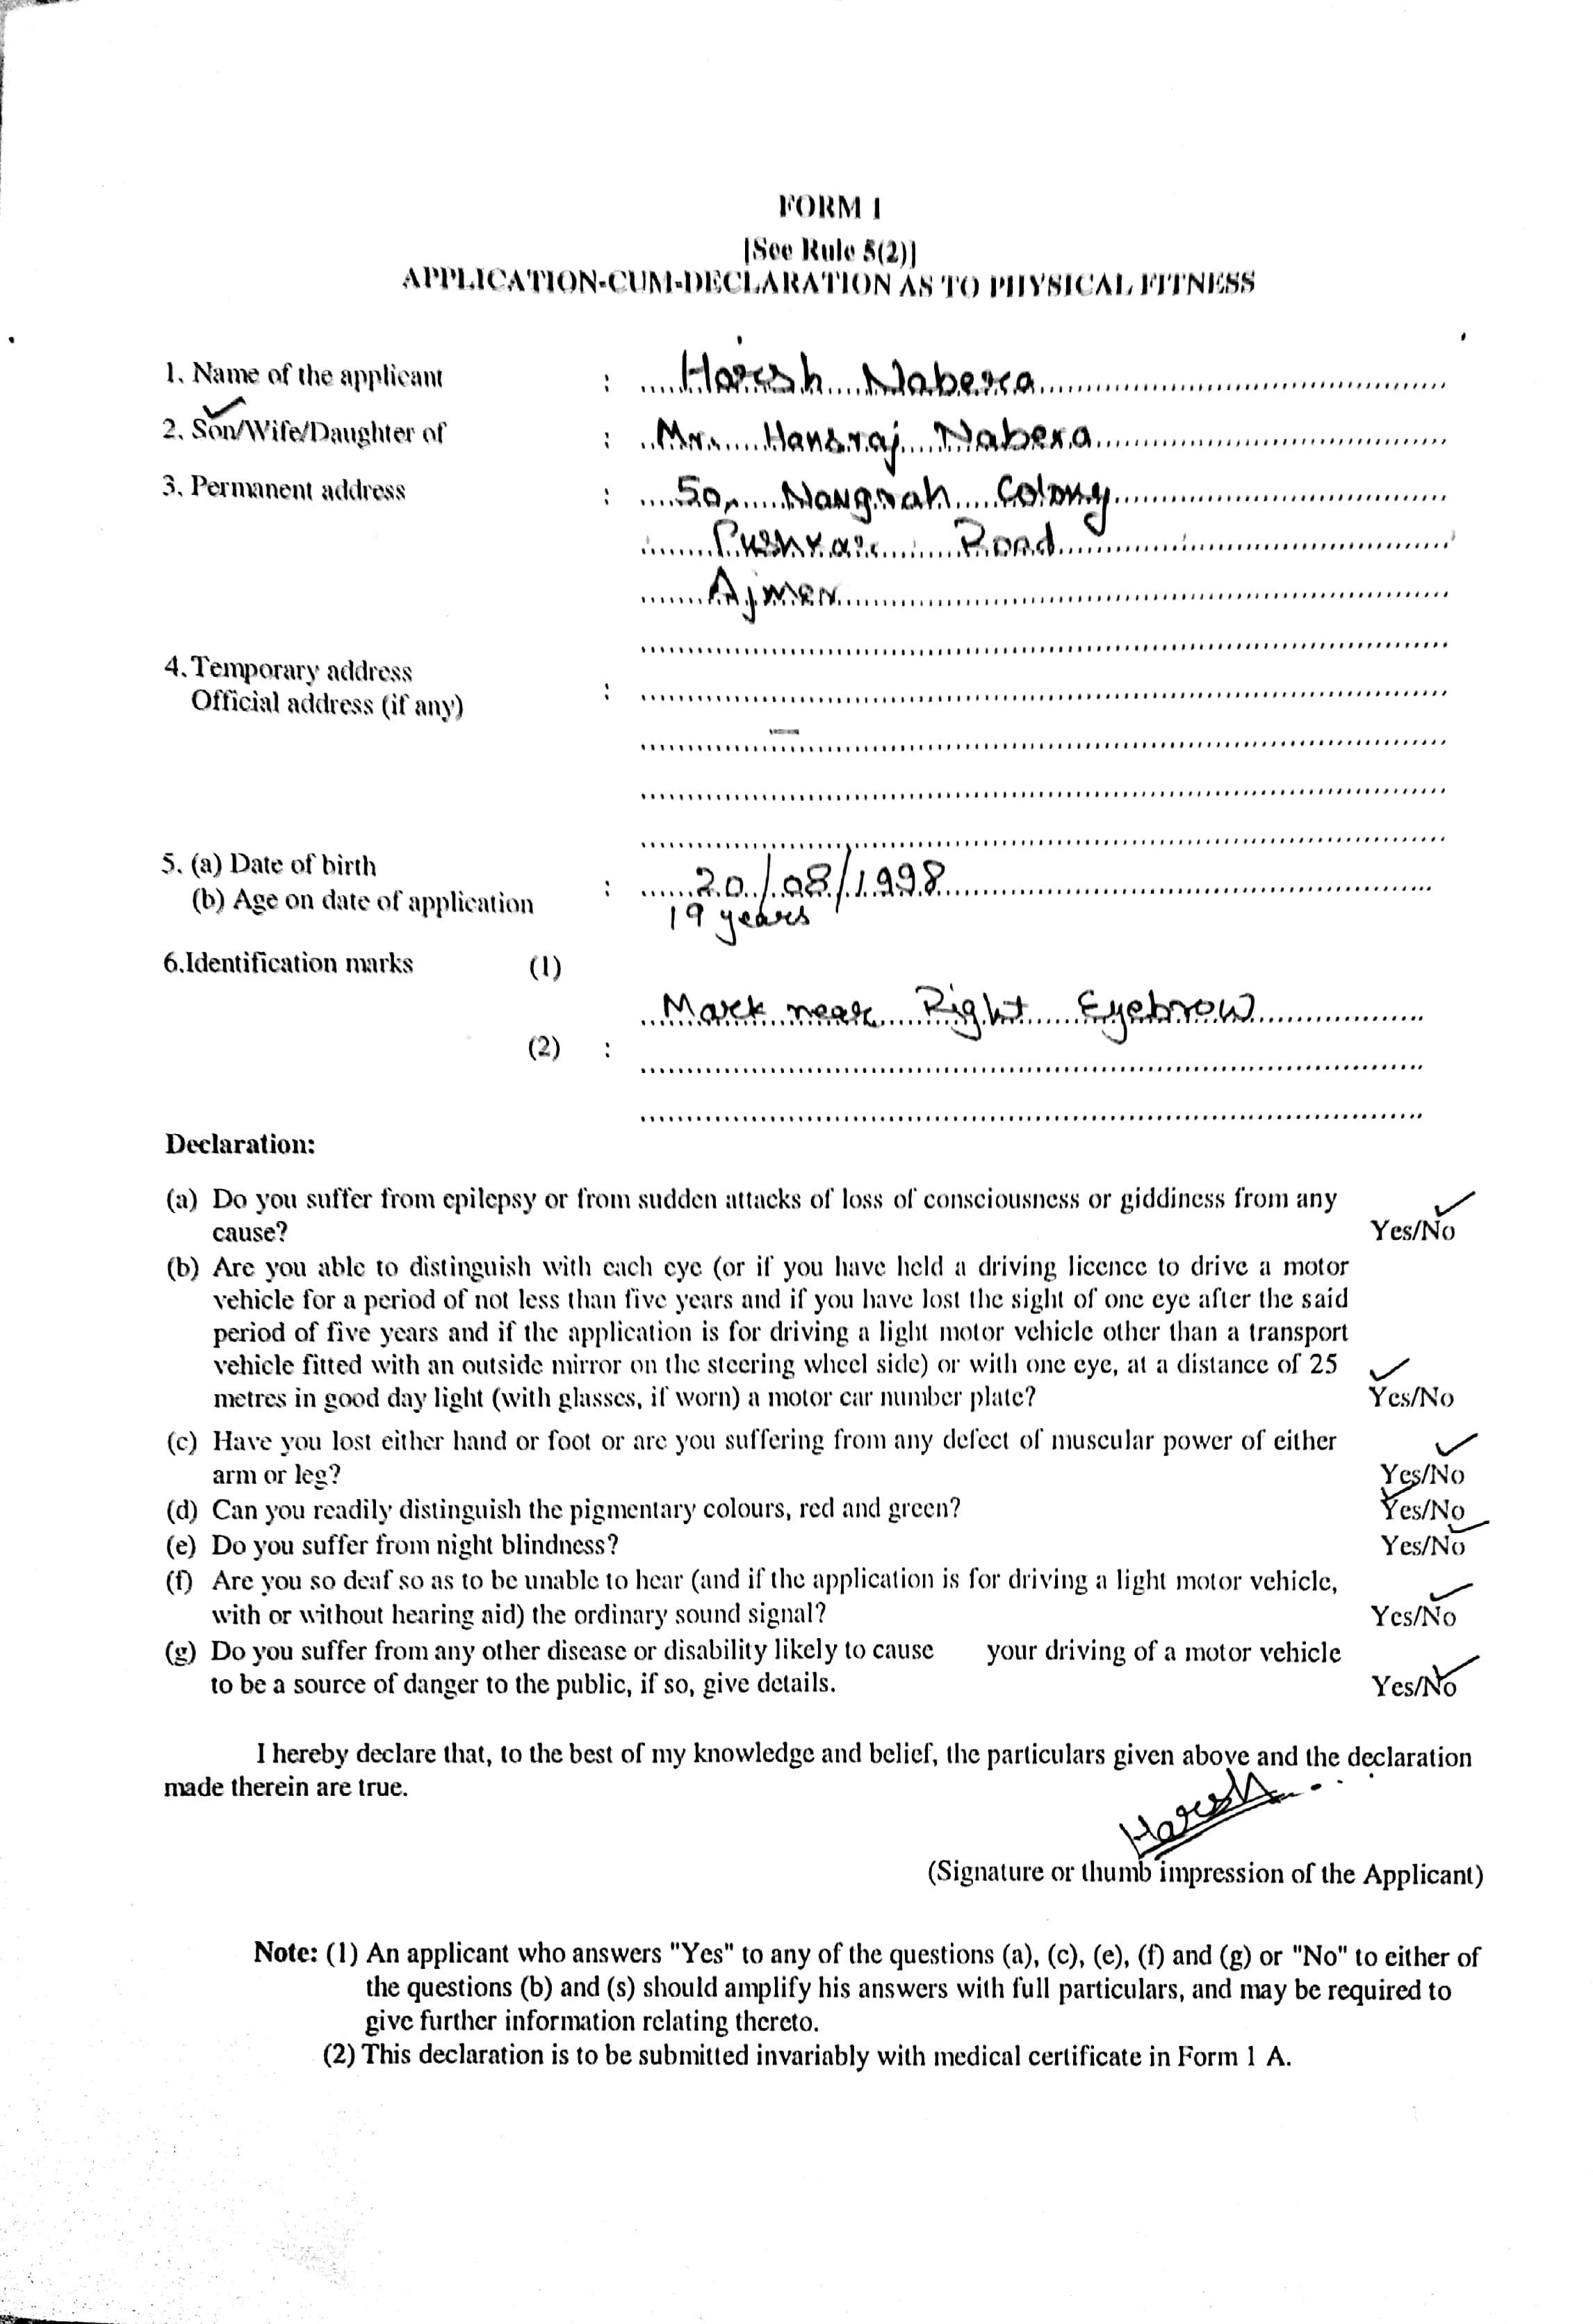 FORM 1
[See Rule 5(2)]
APPLICATION-CUM-DECLARATION AS TO PHYSICAL FITNESS
1. Name of the applicant : Harish Nabera
2. Son/Wife/Daughter of : Mr. Hansraj Nabera
3. Permanent address : 50, Colony
Pushkar Road
Ajmer
4. Temporary address
Official address (if any) :
—
5. (a) Date of birth
(b) Age on date of application : 20/08/1998
19 years
6.Identification marks (1)
Mark near Right Eyebrow
(2) :
Declaration:
(a) Do you suffer from epilepsy or from sudden attacks of loss of consciousness or giddiness from any
cause? Yes/No
(b) Are you able to distinguish with each eye (or if you have held a driving licence to drive a motor
vehicle for a period of not less than five years and if you have lost the sight of one eye after the said
period of five years and if the application is for driving a light motor vehicle other than a transport
vehicle fitted with an outside mirror on the steering wheel side) or with one eye, at a distance of 25
metres in good day light (with glasses, if worn) a motor car number plate? Yes/No
(c) Have you lost either hand or foot or are you suffering from any defect of muscular power of either
arm or leg? Yes/No
(d) Can you readily distinguish the pigmentary colours, red and green? Yes/No
(e) Do you suffer from night blindness? Yes/No
(f) Are you so deaf so as to be unable to hear (and if the application is for driving a light motor vehicle,
with or without hearing aid) the ordinary sound signal? Yes/No
(g) Do you suffer from any other disease or disability likely to cause your driving of a motor vehicle
to be a source of danger to the public, if so, give details. Yes/No
I hereby declare that, to the best of my knowledge and belief, the particulars given above and the declaration
made therein are true.
Harish
(Signature or thumb impression of the Applicant)
Note: (1) An applicant who answers "Yes" to any of the questions (a), (c), (e), (f) and (g) or "No" to either of
the questions (b) and (s) should amplify his answers with full particulars, and may be required to
give further information relating thereto.
(2) This declaration is to be submitted invariably with medical certificate in Form 1 A.